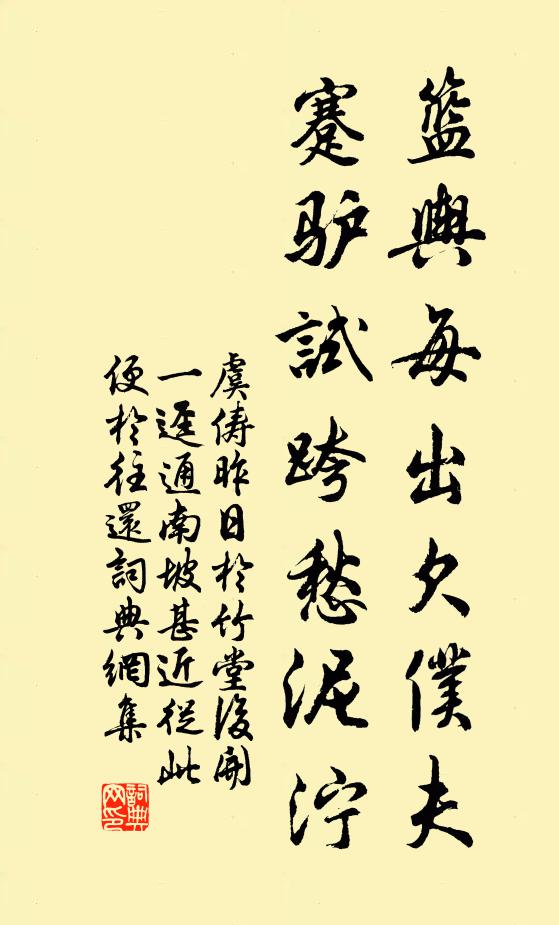 籃輿每出欠僕夫
蹇驴試跨愁泥泞
虞俦昨日於竹堂後開
一逕通南坡甚近從此
便於往還詞典網集
詞典网印